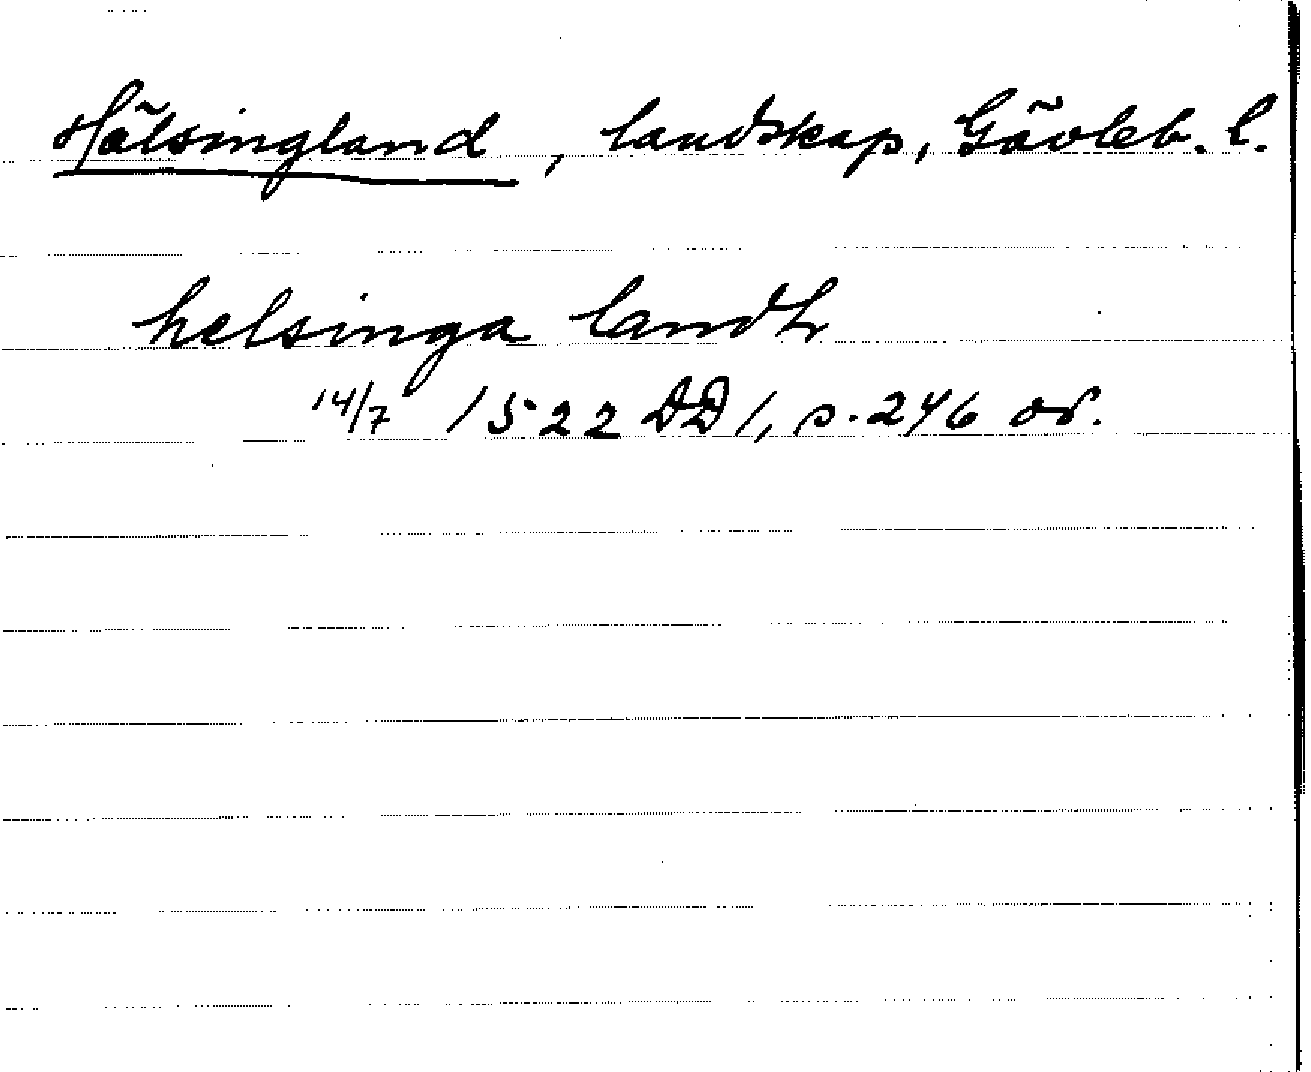 Hälsingland, landskap, Gävleb. l.
helsinga landh
14/7 1522 DD 1, s. 246 or.